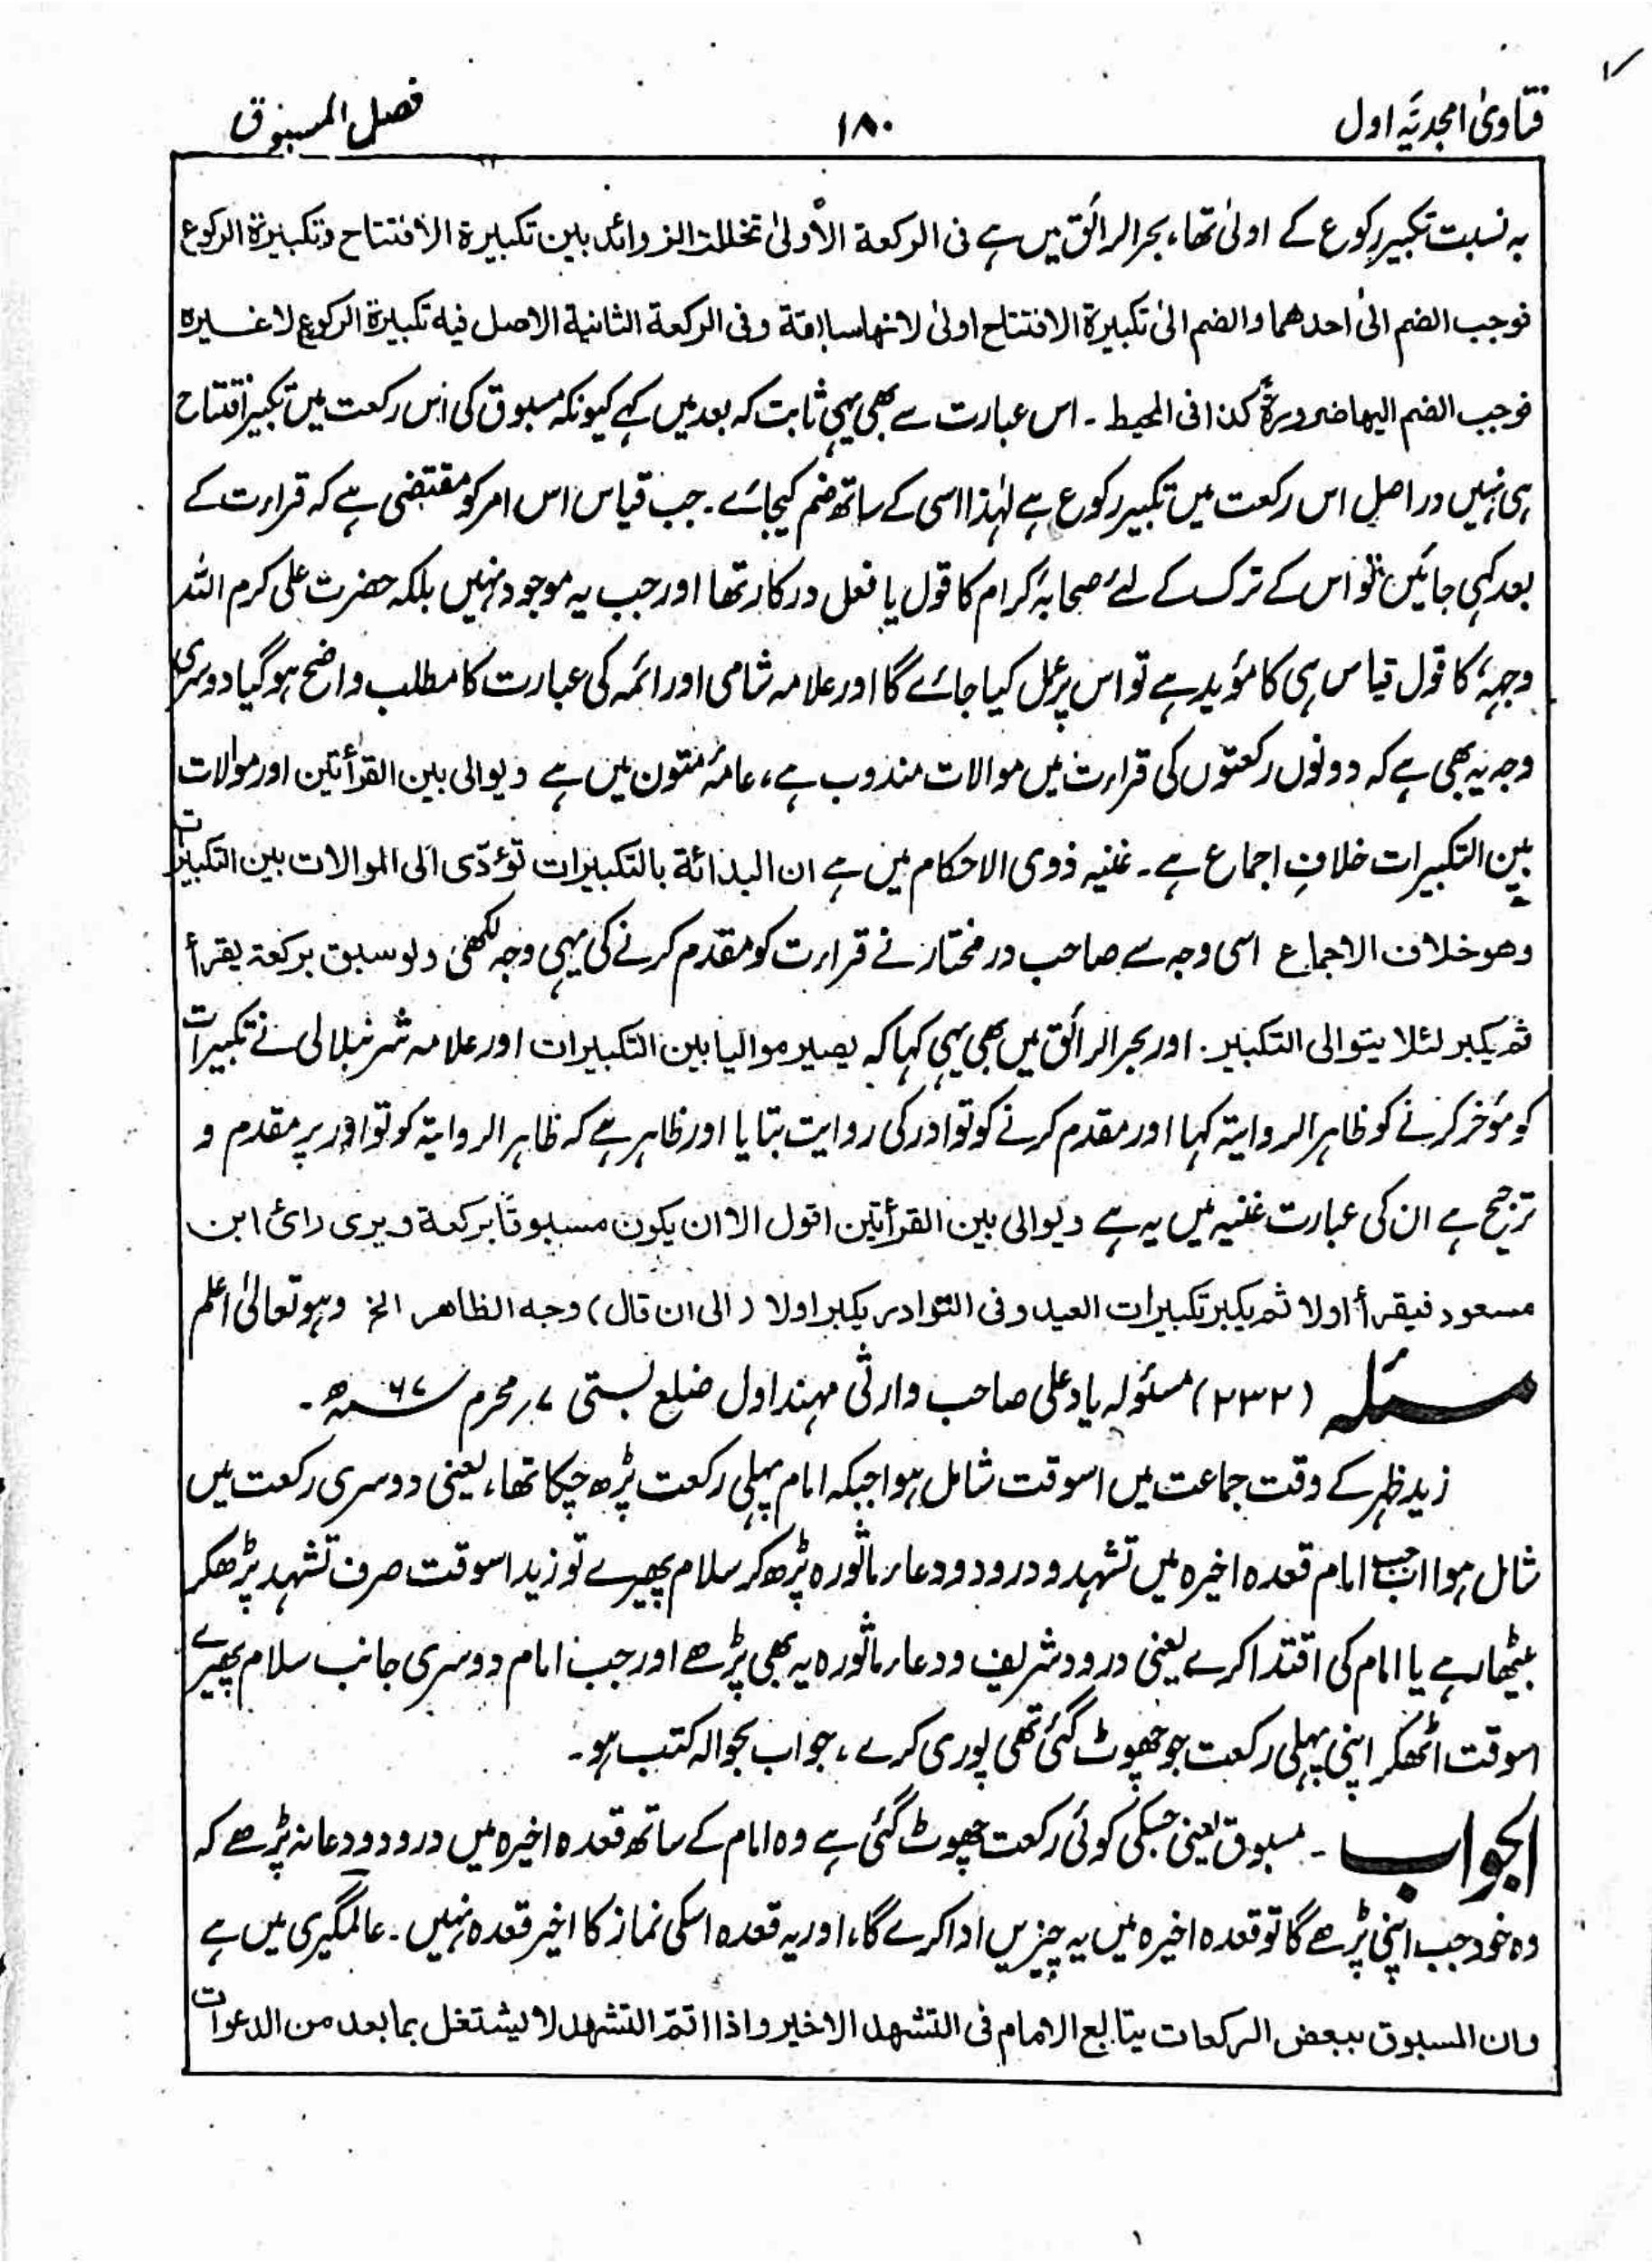 فتاویٰ امجدیہ اول ۱۸۰ فصل المسبوق
بہ نسبت تکبیر رکوع کے اولیٰ تھا، بحر الرائق میں ہے فی الرکعة الأولیٰ تخللت الزوائد بین تکبیرة الافتتاح وتکبیرة الرکوع
فوجب الضم الیٰ احدھما والضم الیٰ تکبیرة الافتتاح اولیٰ لانھا سابقة وفی الرکعة الثانیة الاصل فیه تکبیرة الرکوع لا غیرہ
فوجب الضم الیھا ضرورةً کذا فی المحیط ۔ اس عبارت سے بھی یہی ثابت کہ بعد میں کہے کیونکہ مسبوق کی اس رکعت میں تکبیر افتتاح
ہی نہیں در اصل اس رکعت میں تکبیر رکوع ہے لہٰذا اسی کے ساتھ ضم کیجائے ۔ جب قیاس اس امر کو مقتضی ہے کہ قراءت کے
بعد کہی جائیں تو اس کے ترک کے لئے صحابۂ کرام کا قول یا فعل درکار تھا اور جب یہ موجود نہیں بلکہ حضرت علی کرم اللہ
وجہہٗ کا قول قیاس ہی کا مؤید ہے تو اس پر عمل کیا جائے گا اور علامہ شامی اور ائمہ کی عبارت کا مطلب واضح ہو گیا دوسری
وجہ یہ بھی ہے کہ دونوں رکعتوں کی قراءت میں موالات مندوب ہے، عامۂ متون میں ہے ویوالی بین القرأتین اور موالات
بین التکبیرات خلافِ اجماع ہے ۔ غنیہ ذوی الاحکام میں ہے ان البدائة بالتکبیرات تؤدّی الی الموالات بین التکبیرات
وھو خلاف الاجماع اسی وجہ سے صاحب در مختار نے قراءت کو مقدم کرنے کی یہی وجہ لکھی ولو سبق برکعة یقرأ
ثم یکبر لئلا یتوالی التکبیر ۔ اور بحر الرائق میں بھی یہی کہا کہ یصیر موالیا بین التکبیرات اور علامہ شرنبلالی نے تکبیرات
کو مؤخر کرنے کو ظاہر الروایة کہا اور مقدم کرنے کو نوادر کی روایت بتایا اور ظاہر ہے کہ ظاہر الروایة کو نوادر پر مقدم و
ترجیح ہے ان کی عبارت غنیہ میں یہ ہے ویوالی بین القرأتین اقول الا ان یکون مسبوقًا برکعة ویری رائ ابن
مسعود فیقرأ اولا ثم یکبر تکبیرات العید وفی النوادر یکبر اولا (الی ان قال) وجه الظاھر الخ وہو تعالیٰ اعلم
مسئلہ (۲۳۲) مسئولہ یاد علی صاحب وارثی مہنداول ضلع بستی ۷؍ محرم ۶۷ھ ۔
زید ظہر کے وقت جماعت میں اسوقت شامل ہوا جبکہ امام پہلی رکعت پڑھ چکا تھا، یعنی دوسری رکعت میں
شامل ہوا اب جب امام قعدہ اخیرہ میں تشہد و درود و دعاء ماثورہ پڑھ کر سلام پھیرے تو زید اسوقت صرف تشہد پڑھکر
بیٹھا رہے یا امام کی اقتدا کرے یعنی درود شریف و دعاء ماثورہ یہ بھی پڑھے اور جب امام دوسری جانب سلام پھیرے
اسوقت اٹھکر اپنی پہلی رکعت جو چھوٹ گئی تھی پوری کرے، جواب بحوالہ کتب ہو۔
الجواب ۔ مسبوق یعنی جسکی کوئی رکعت چھوٹ گئی ہے وہ امام کے ساتھ قعدہ اخیرہ میں درود و دعا نہ پڑھے کہ
وہ خود جب اپنی پڑھے گا تو قعدہ اخیرہ میں یہ چیزیں ادا کرے گا، اور یہ قعدہ اسکی نماز کا اخیر قعدہ نہیں ۔ عالمگیری میں ہے
وان المسبوق ببعض الرکعات یتابع الامام فی التشھد الاخیر واذا اتمّ التشھد لا یشتغل بما بعد من الدعوات